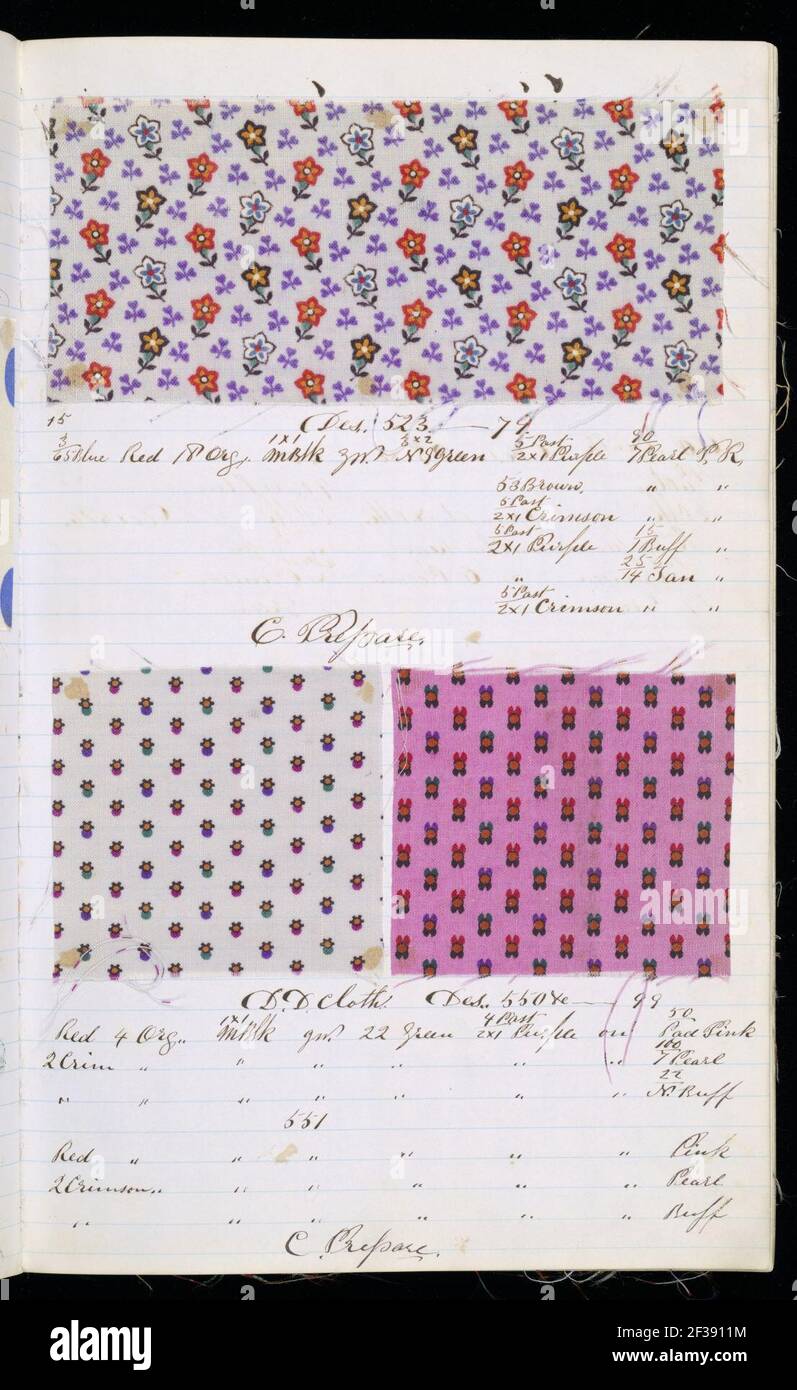 alamy
15
Des. 523 — 79
3 1x1 3x2 5 Past 90
65 Blue Red 18 Org. MBlk gn. N9 Green 2x1 Purple 7 Pearl P. R,
53 Brown, " "
5 Past
2x1 Crimson " "
5 Past 15
2x1 Purple 1 Buff "
25
" 14 Tan "
5 Past
2x1 Crimson " "
C. Prepare.
alamy
D. D. Cloth. Des. 550 — 99
1x1 4 Past 50
Red 4 Org. MBlk gn. 22 Green 2x1 Purple on Pad Pink
100
2 Crim " " " " " " 7 Pearl
22
" " " " " " " N. Buff
551
Red " " " " " " Pink
2 Crimson " " " " " " Pearl
" " " " " " Buff
C. Prepare.
alamy
Image ID: 2F3911M
www.alamy.com